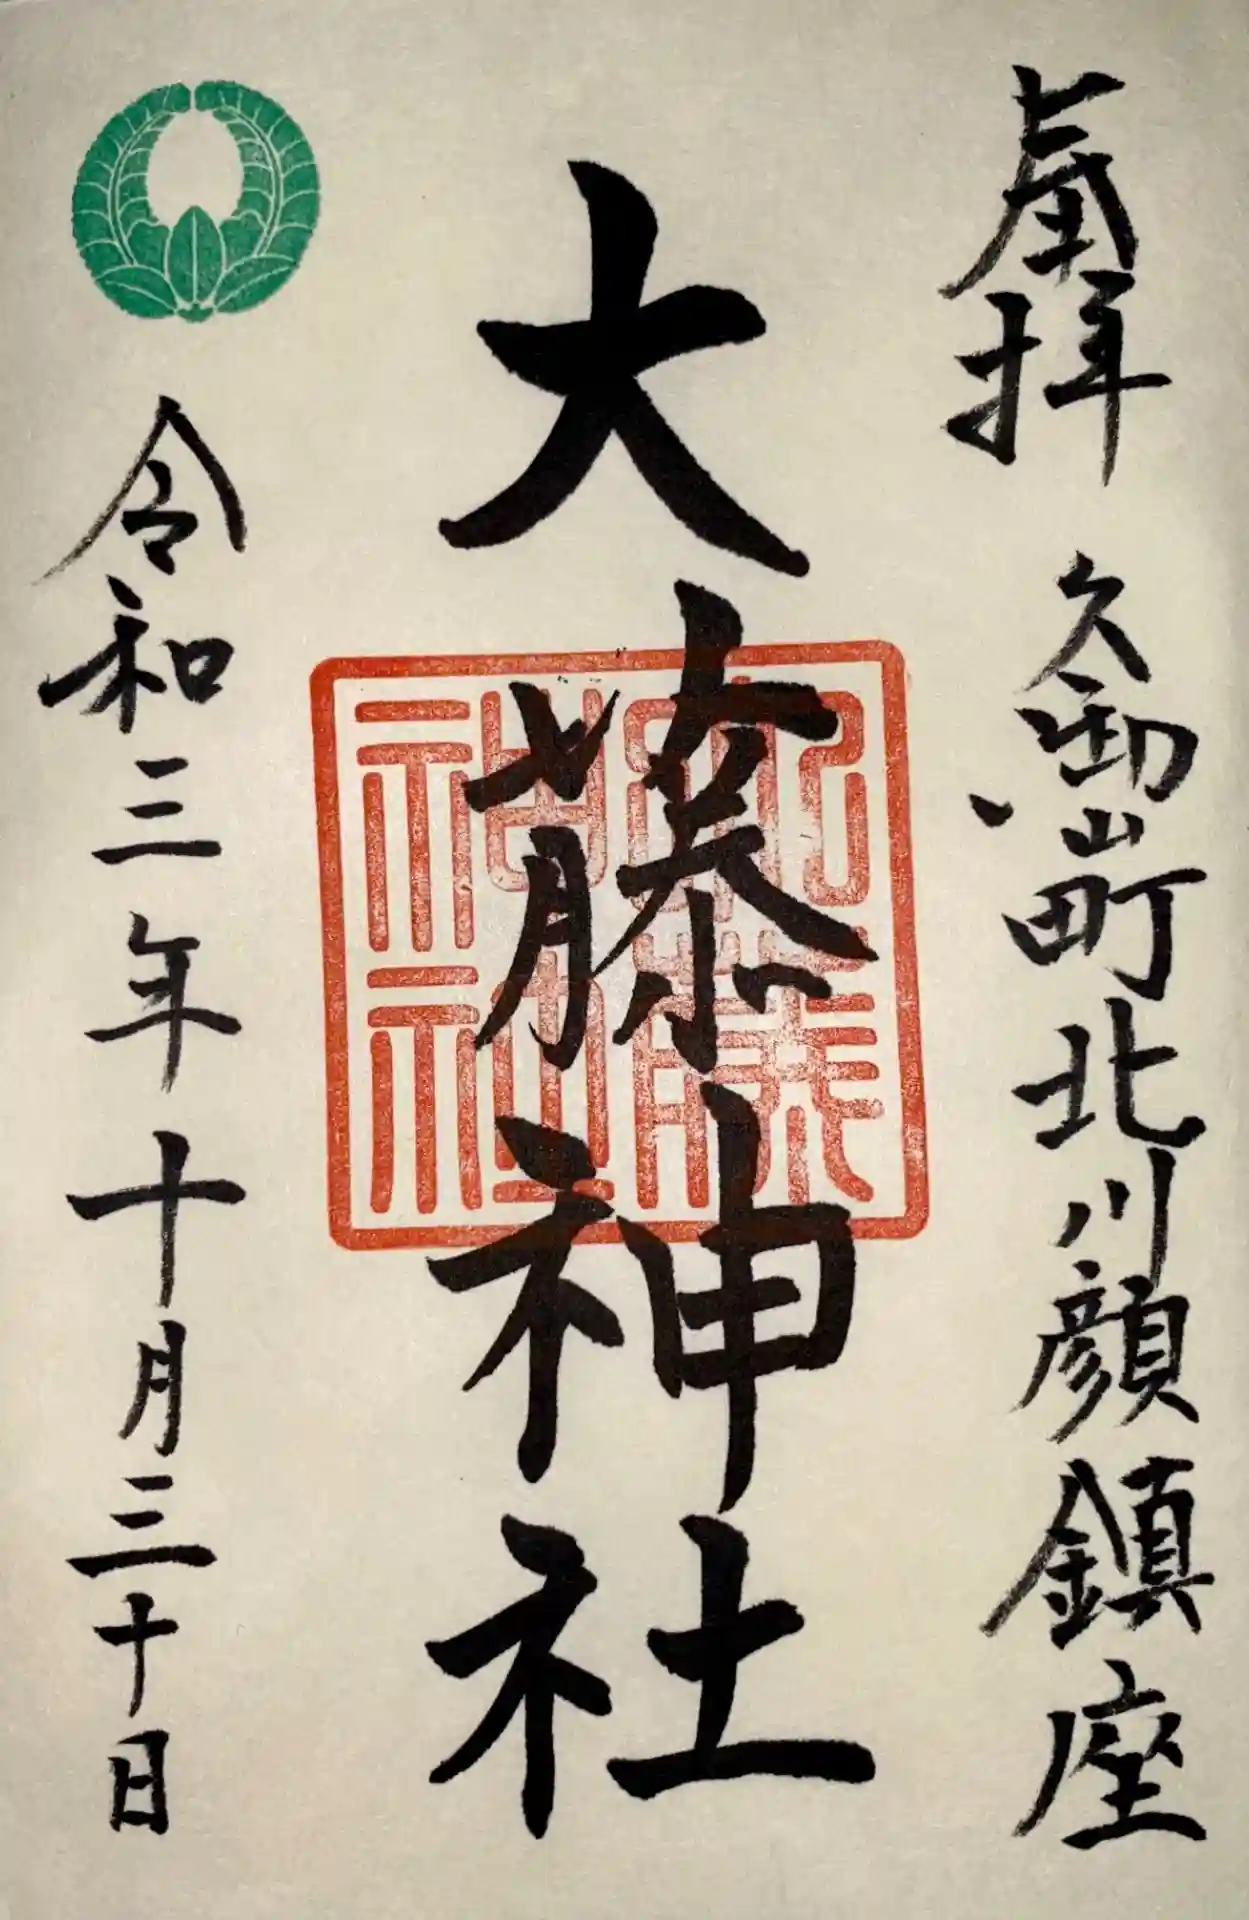 虔拝 久御山町北川顔鎮座
大藤神社
令和三年十月三十日